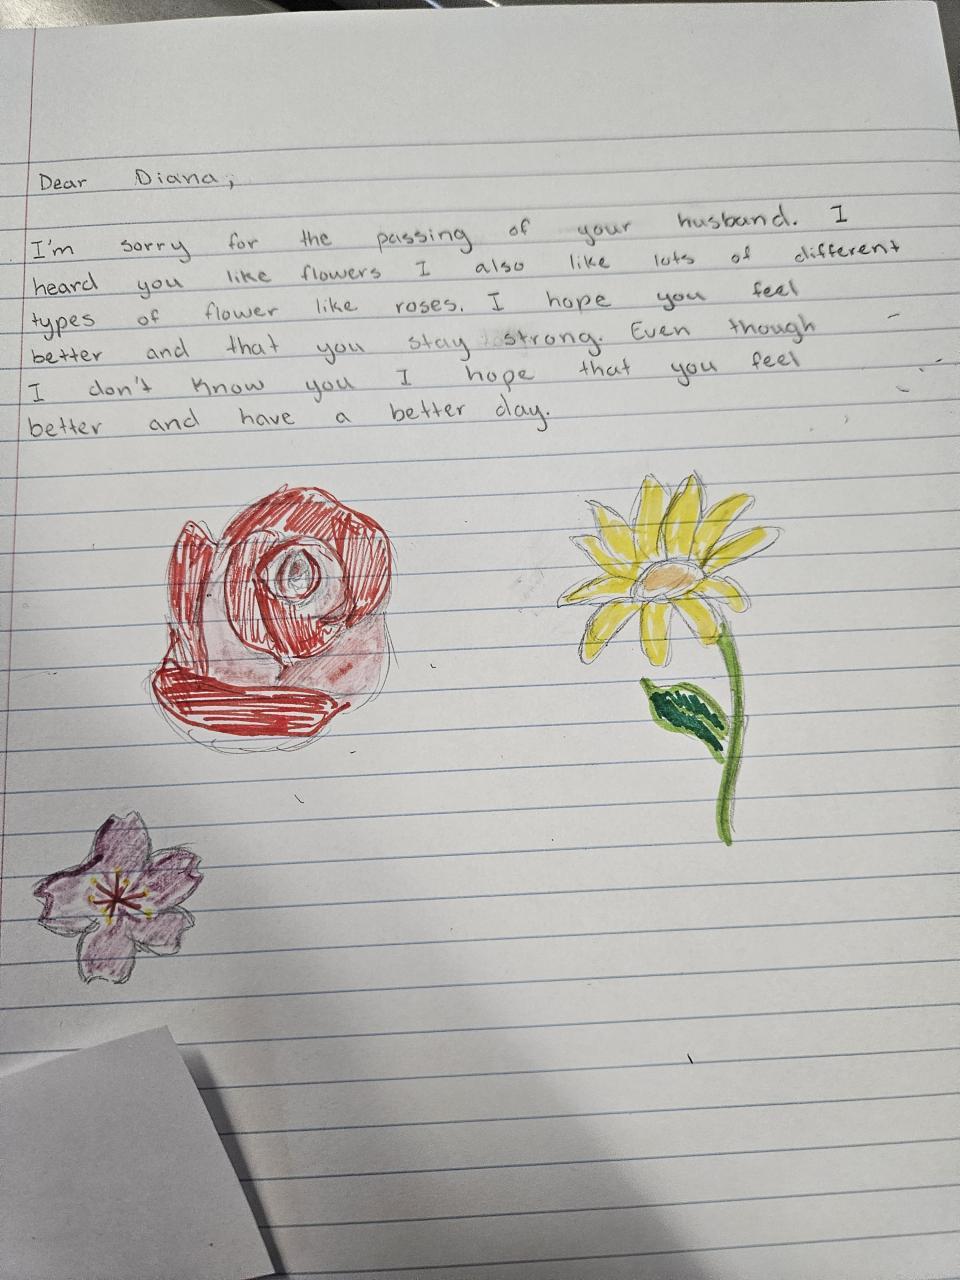 Dear Diana,
I'm sorry for the passing of your husband. I
heard you like flowers I also like lots of different
types of flower like roses. I hope you feel
better and that you stay strong. Even though
I don't know you I hope that you feel
better and have a better day.